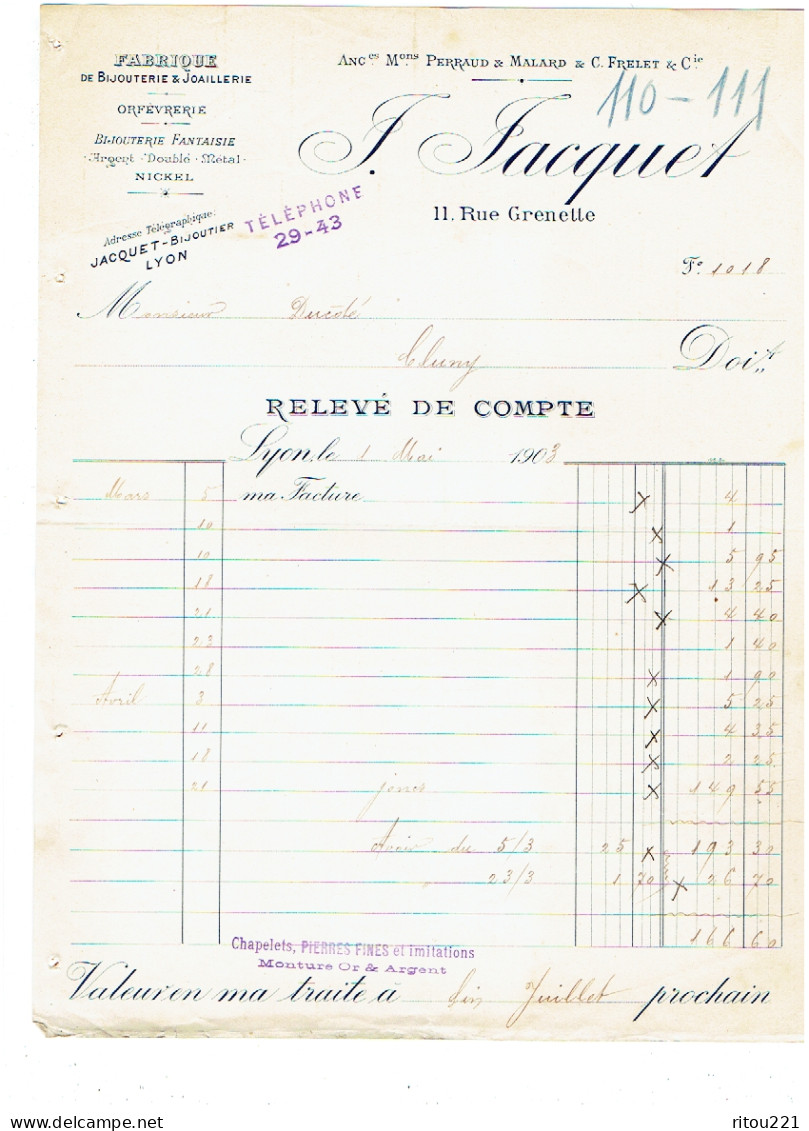 FABRIQUE
DE BIJOUTERIE & JOAILLERIE
ORFÈVRERIE
BIJOUTERIE FANTAISIE
Argent · Doublé · Métal
NICKEL
Adresse Télégraphique:
JACQUET-BIJOUTIER
LYON
TÉLÉPHONE
29-43
Anc.es M.ons PERRAUD & MALARD & C. FRELET & Cie
110-111
J. Jacquet
11. Rue Grenette
Fo 1018
Monsieur
Cluny Doit
RELEVÉ DE COMPTE
Lyon, le 1 Mai 1903
Mars 5 ma Facture x 4
10 x 1
10 x 5 95
18 x 13 25
21 x 4 40
23 1 40
28 x 1 90
Avril 3 x 5 25
11 x 4 35
18 x 2 25
21 joncs x 149 55
Avoir du 5/3 25 x 193 30
" 23/3 1 70 x 26 70
166 60
Chapelets, PIERRES FINES et imitations
Monture Or & Argent
Valeur en ma traite à fin Juillet prochain
delcampe.net
ritou221